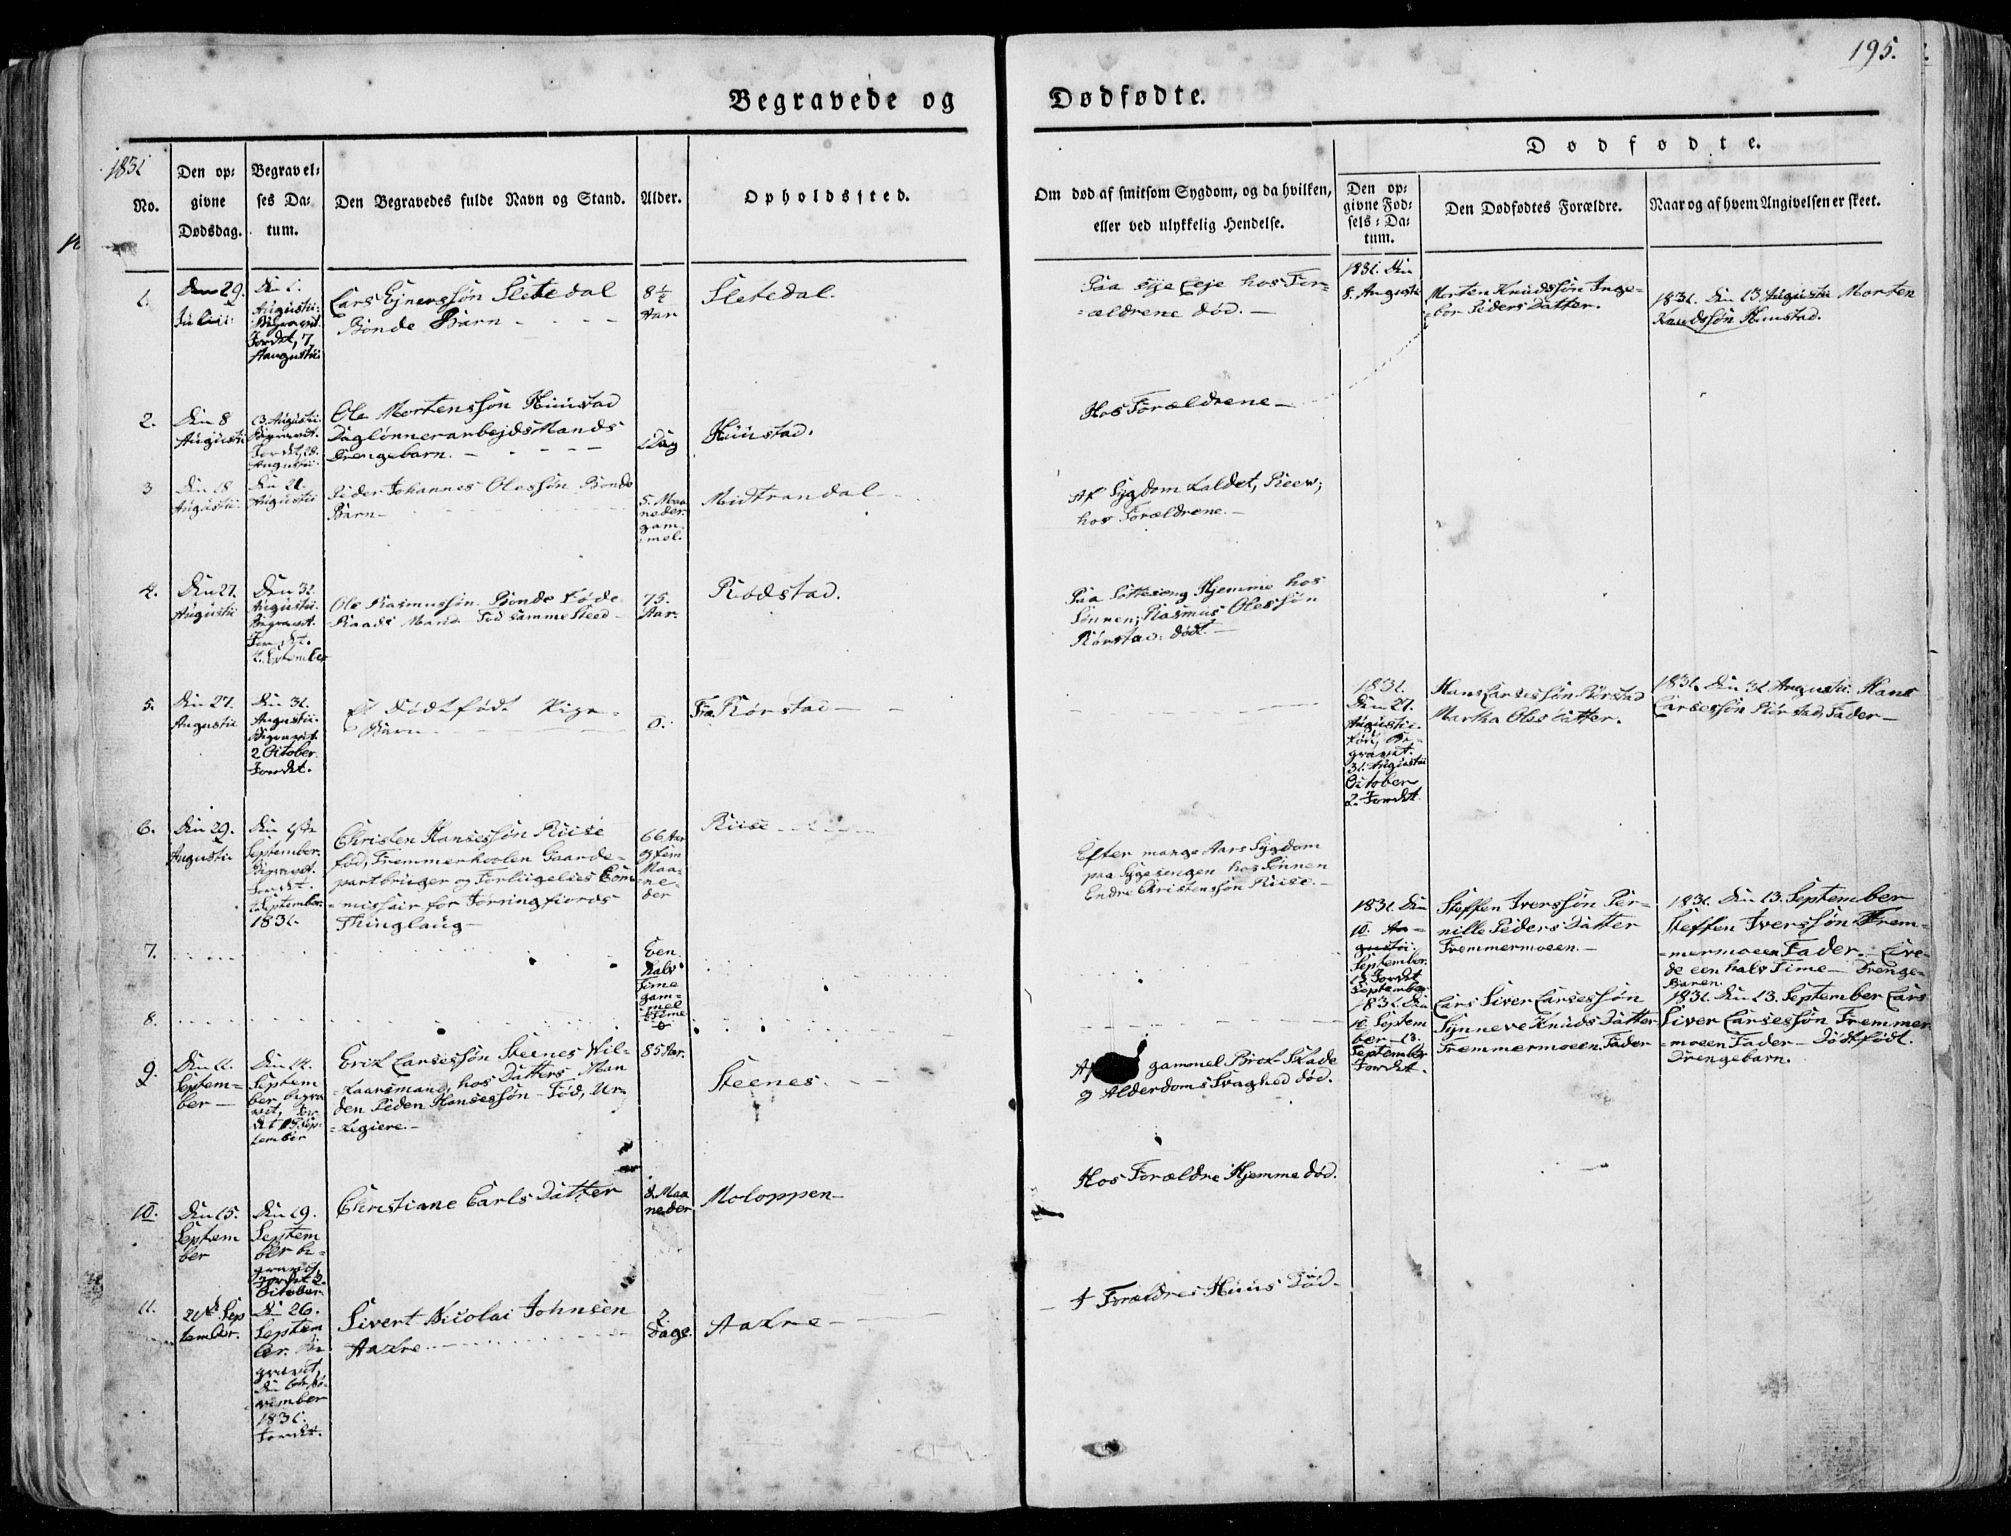 195.
Begravede og Dødfødte.
1831
No.
Den op-
givne
Dødsdag.
Begravel-
ses Da-
tum.
Den Begravedes fulde Navn og Stand.
Alder.
Opholdssted.
Om død af smitsom Sygdom, og da hvilken,
eller ved ulykkelig Hendelse.
Dødfødte.
Den op-
givne Fød-
sels-Da-
tum.
Den Dødfødtes Forældre.
Naar og af hvem Angivelsen er skeet.
1.
Den 29.
Julii
Den 1.
Augustii
Begravet.
Jordet, 7
Aaugustii
Lars Ejnerssøn Sletedal
Bonde Barn
8 1/2
Aar
Sletedal.
Paa Syge Leje hos For-
ældrene død.
1831. Den
8. Augustii
Morten Knudssøn Inge-
bor Peders Datter.
1831. Den 13 Augustii Morten
Knudssøn Huustad.
2.
Den 8
Augustii
13. Augustii
Begravet.
Jordet, 28.
Augustii
Ole Mortenssøn Huustad
DaglønnerarbejdsMands
Drengebarn.
1 Dag
Huustad.
Hos Forældrene
3
Den 18
Augustii
Den 21.
Augustii
Peder Johannes Olessøn Bonde
Barn
5. Maa
neder
gam
mel.
Midtrandal
Af Sygdom kaldet, Reew;
hos Forældrene.
4.
Den 27.
Augustii
Den 31.
Augustii
Begravet.
Jordet.
2. September
Ole Rasmussøn. Bonde Føde-
Raads Mand Fød samme Steed
75.
Aar.
Rødstad.
Paa Sotteseng Hjemme hos
Sønnen; Rasmus Olessøn
Rørstad: dødt.
5.
Den 27.
Augustii
Den 31.
Augustii
Begravet.
2 October
Jordet.
Et Dødtfødt Pige-
Barn
0.
Fra Rørstad
1831.
Den 27.
Augustii
fød, Be-
gravet.
31. Augustii
October
2. Jordet
Hans Larsessøn Rørstad
Martha Oles Datter.
1831. Den 31 Augustii Hans
Larsessøn Rørstad, Fader
6.
Den 29.
Augustii
September.
Begravet.
Jordet.
September
1831.
Christen Hansessøn Riise
fød, Fremmerhoolen Gaarde-
partbruger og Forligelses Com
-missair for Jørringfiords
Thinglaug
66 Aar
og fem
Maa-
ne-
der
Riise
Efter mange Aars Sygdom
paa Sygesengen hos Sønnen
Endre Christenssøn Riise.
7.
Een
halv
Time
gam-
mel
1831. Den
10. Au-
gustii
September.
13 Jordet
September
Steffen Iverssøn Per-
nille Peders Datter
Fremmermoeen.
1831. Den 13. September
Steffen Iverssøn Frem-
-mermoeen Fader. Leve-
de een halv Time Drenge-
Baren.
8.
0
1831. Den
10. Septem
ber 13.
September
Jordet.
Lars Siver Larsessøn
Synneve Knuds Datter
Fremmermoeen. Fader
1831. Den 13. September Lars
Siver Larsessøn Fremmer
-moeen Fader Dødtfødt.
Drengebarn.
9.
Den 11.
Septem-
ber
Den 14.
Septem
ber begra
vet,
September
Erik Larsessøn Steenes Vil-
kaarsmand, hos Datters Man
den Peden Hansessøn Fød, Ur-
kegiere.
85 Aar.
Steenes.
Af gammel Brok Skade
g Alderdoms Svaghed død.
10.
Den 15.
Septem
ber
Den 19.
Septem
ber be-
gravet,
Jordet 2.
October
Christiane Carls Datter
8. Maa
neder
Moloppen
Hos Forældre Hjemme død.
11.
21de Sep
tember.
Den 26.
Septem
ber. Be
gravet,
Den 6te No-
vember
1831.
Jordet.
Sivert Nicolai Johnsen
Aakre
2
Dage.
Aakre
I Forældres Huus Død.